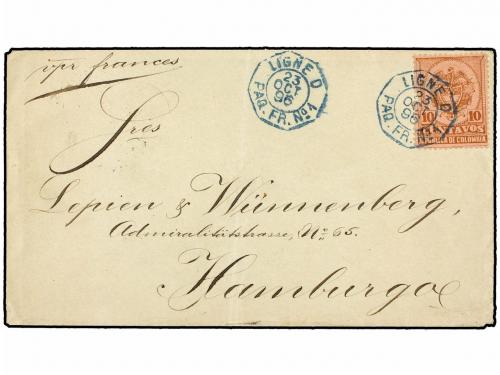 vpr frances
LIGNE D
23
OCT
96
PAQ. FR. Nº 4
LIGNE D
23
OCT
96
PAQ. FR. Nº 4
10 CENTAVOS 10
REPUBLICA DE COLOMBIA
Sres
Lopien & Wünnenberg,
Admiralitätstrasse, No 65.
Hamburgo